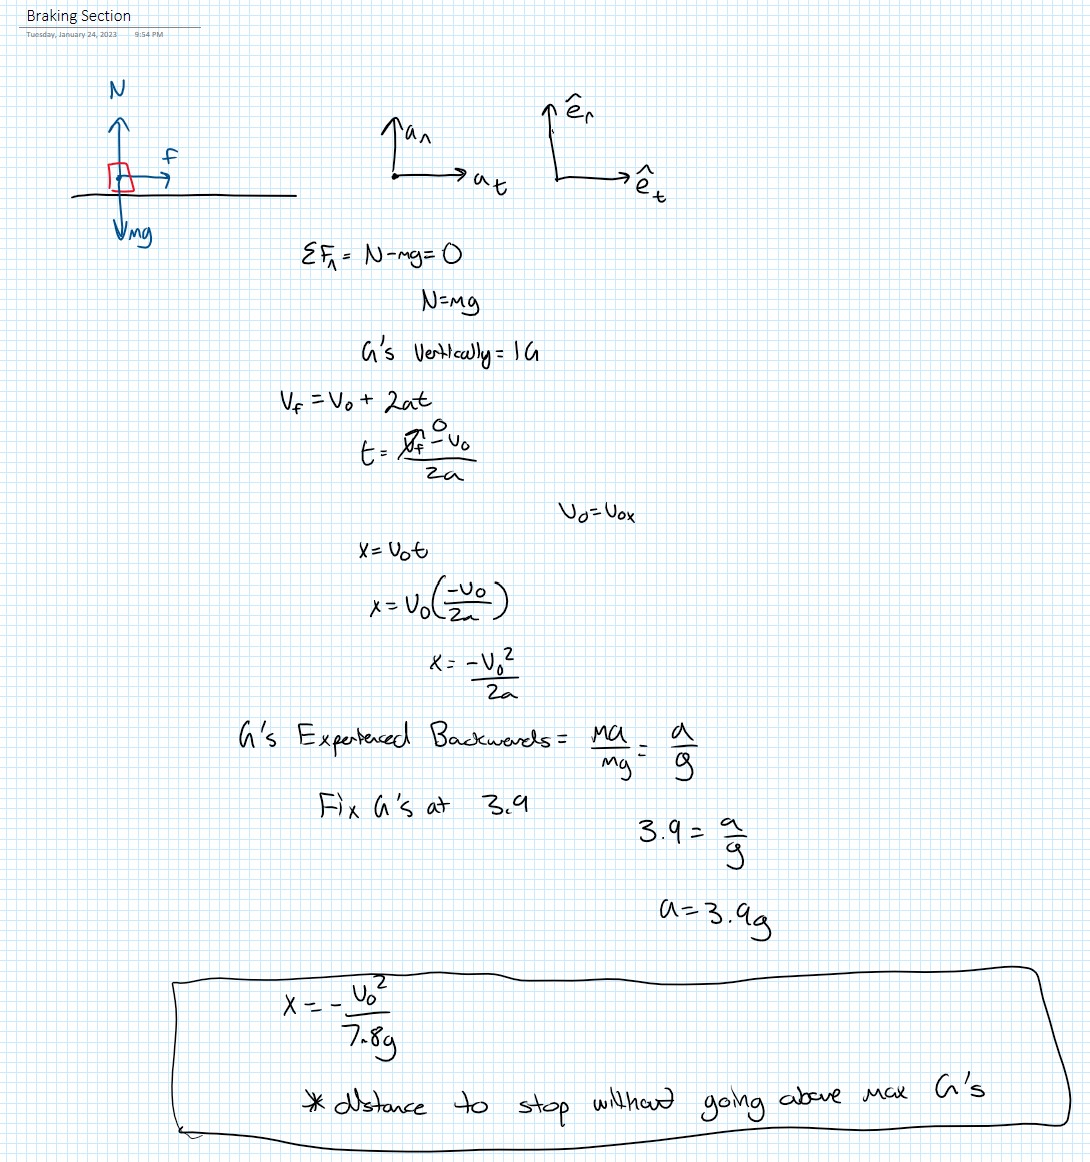 Braking Section
Tuesday, January 24, 2023 9:54 PM
N
f
mg
an
at
ên
êt
ΣFn = N-mg=0
N=mg
G's Vertically = 1G
Vf = Vo + 2at
t = (Vf - Vo)/2a
0
Vo = Vox
x = Vot
x = Vo(-Vo/2a)
x = -Vo²/2a
G's Experienced Backwards = ma/mg = a/g
Fix G's at 3.9
3.9 = a/g
a = 3.9g
x = -Vo²/7.8g
* distance to stop without going above max G's